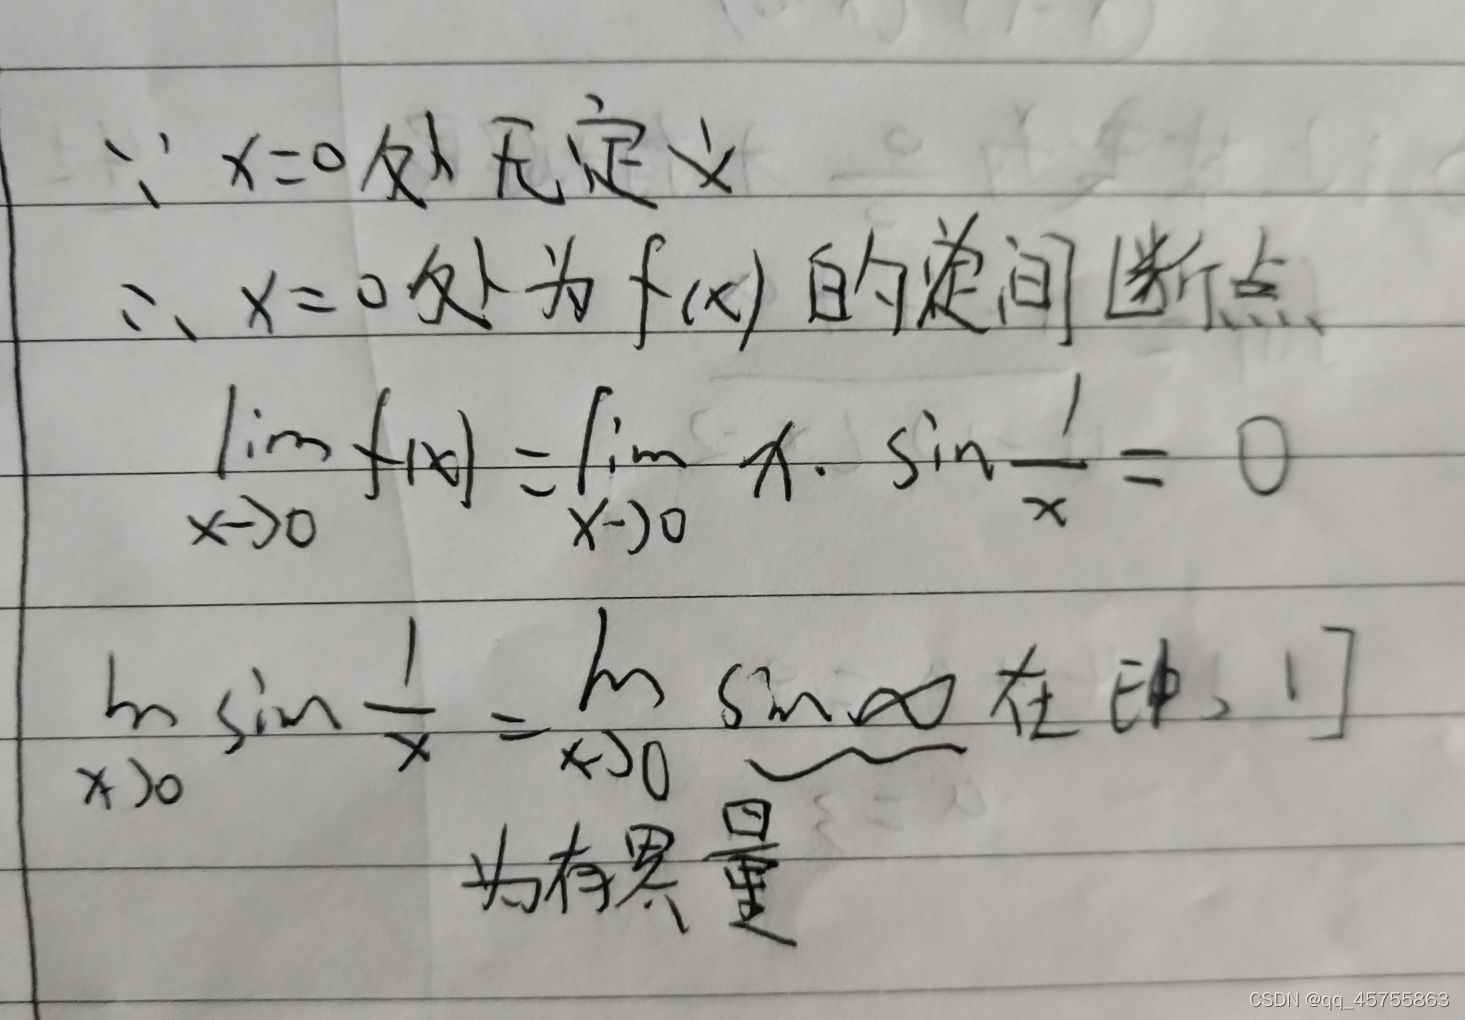 ∵ x=0处无定义
∴ x=0处为f(x)的间断点
lim x→0 f(x) = lim x→0 x · sin 1/x = 0
lim x→0 sin 1/x = lim x→0 sin∞ 在 [ , 1]
为有界量
CSDN @qq_45755863